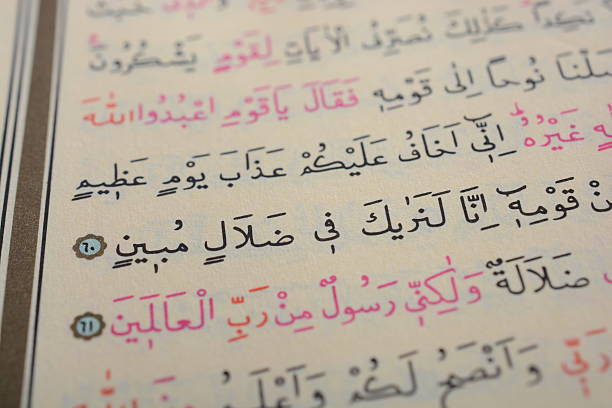 نَكِداً كَذٰلِكَ نُصَرِّفُ الْاٰيَاتِ لِقَوْمٍ يَشْكُرُونَ
نُوحاً اِلٰى قَوْمِهٖ فَقَالَ يَاقَوْمِ اعْبُدُوا اللّٰهَ
غَيْرُهُ اِنّٖٓى اَخَافُ عَلَيْكُمْ عَذَابَ يَوْمٍ عَظٖيمٍ
قَوْمِهٖٓ اِنَّا لَنَرٰيكَ فٖى ضَلَالٍ مُبٖينٍ ٦٠
ضَلَالَةٌ وَلٰكِنّٖى رَسُولٌ مِنْ رَبِّ الْعَالَمٖينَ ٦١
رَبّٖى وَاَنْصَحُ لَكُمْ وَاَعْلَمُ